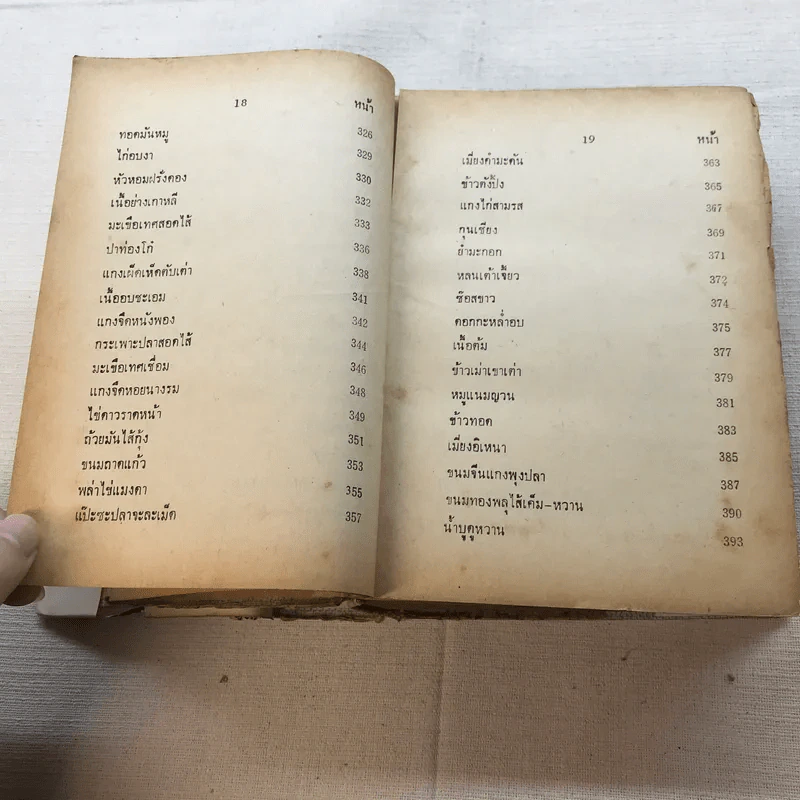 18 หน้า
ทอดมันหมู 326
ไก่อบงา 329
หัวหอมฝรั่งดอง 330
เนื้อย่างเกาหลี 332
มะเขือเทศสอดไส้ 333
ปาท่องโก๋ 336
แกงเผ็ดเห็ดตับเต่า 338
เนื้ออบชะเอม 341
แกงจืดหนังพอง 342
กระเพาะปลาสอดไส้ 344
มะเขือเทศเชื่อม 346
แกงจืดหอยนางรม 348
ไข่ดาวราดหน้า 349
ถ้วยมันไส้กุ้ง 351
ขนมถาดแก้ว 353
พล่าไข่แมงดา 355
แป๊ะซะปลาจะละเม็ด 357
19 หน้า
เมี่ยงคำมะดัน 363
ข้าวตังปิ้ง 365
แกงไก่สามรส 367
กุนเชียง 369
ยำมะกอก 371
หลนเต้าเจี้ยว 372
ซ๊อสขาว 374
ดอกกะหล่ำอบ 375
เนื้อตุ๋ม 377
ข้าวเม่าเขาเต่า 379
หมูแนมญวน 381
ข้าวทอด 383
เมี่ยงอิเหนา 385
ขนมจีนแกงพุงปลา 387
ขนมทองพลุไส้เค็ม-หวาน 390
น้ำบูดูหวาน 393